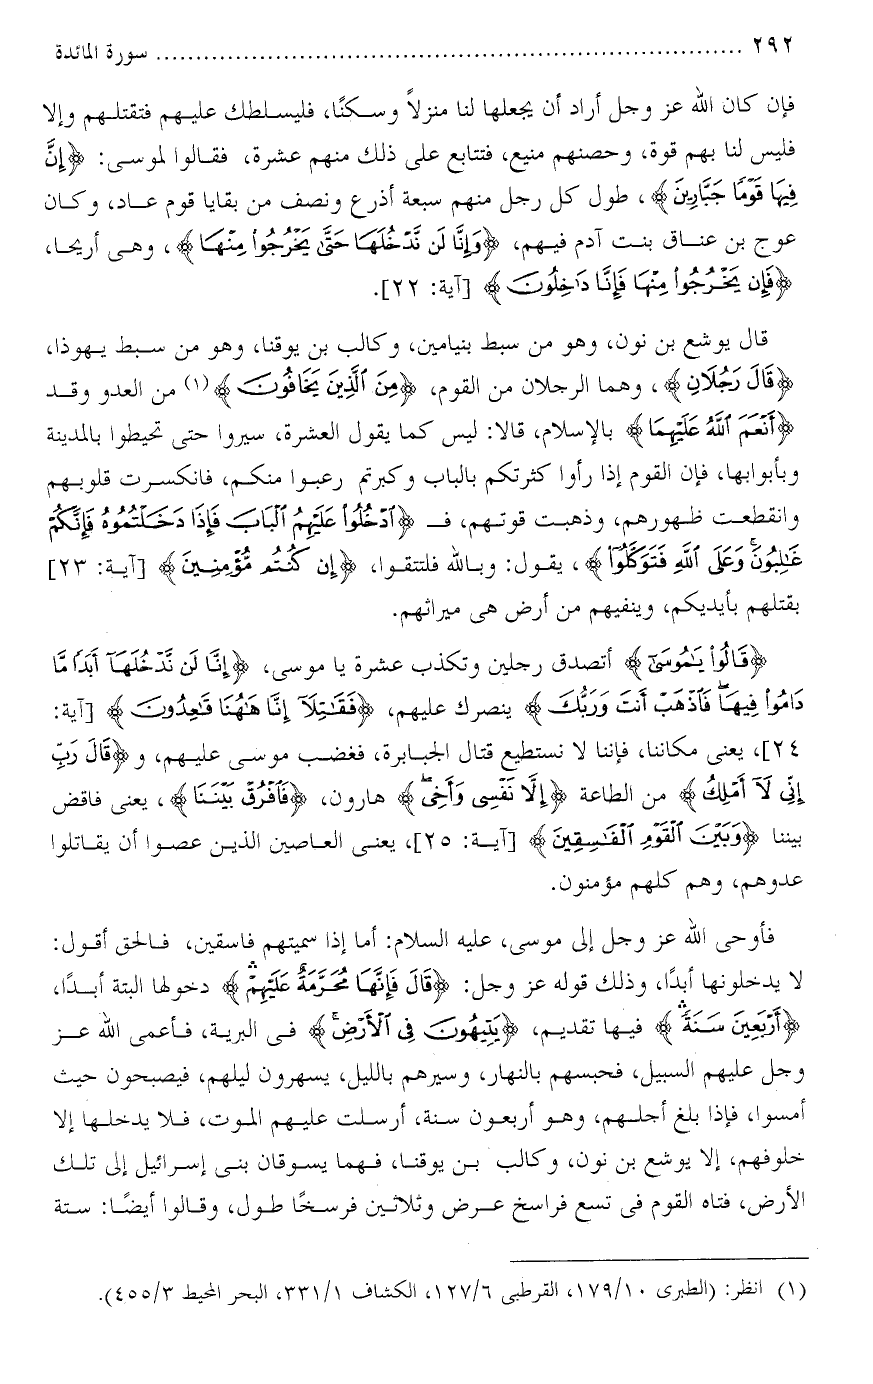 ٢٩٢ ........................................................................ سورة المائدة
فإن كان الله عز وجل أراد أن يجعلها لنا منزلاً وسكنًا، فليسلطك عليهم فتقتلهم وإلا
فليس لنا بهم قوة، وحصنهم منيع، فتتابع على ذلك منهم عشرة، فقالوا لموسى: ﴿إِنَّ
فِيهَا قَوْمًا جَبَّارِينَ﴾، طول كل رجل منهم سبعة أذرع ونصف من بقايا قوم عاد، وكان
عوج بن عناق بنت آدم فيهم، ﴿وَإِنَّا لَن نَّدْخُلَهَا حَتَّىٰ يَخْرُجُواْ مِنْهَا﴾، وهى أريحا،
﴿فَإِن يَخْرُجُواْ مِنْهَا فَإِنَّا دَاخِلُونَ﴾ [آية: ٢٢].
قال يوشع بن نون، وهو من سبط بنيامين، وكالب بن يوقنا، وهو من سبط يهوذا،
﴿قَالَ رَجُلَانِ﴾، وهما الرجلان من القوم، ﴿مِنَ ٱلَّذِينَ يَخَافُونَ﴾(١) من العدو وقد
﴿أَنْعَمَ ٱللَّهُ عَلَيْهِمَا﴾ بالإسلام، قالا: ليس كما يقول العشرة، سيروا حتى تحيطوا بالمدينة
وبأبوابها، فإن القوم إذا رأوا كثرتكم بالباب وكبرتم رعبوا منكم، فانكسرت قلوبهم
وانقطعت ظهورهم، وذهبت قوتهم، فـ ﴿ٱدْخُلُواْ عَلَيْهِمُ ٱلْبَابَ فَإِذَا دَخَلْتُمُوهُ فَإِنَّكُمْ
غَٰلِبُونَ وَعَلَى ٱللَّهِ فَتَوَكَّلُوٓاْ﴾، يقول: وبالله فلتتقوا، ﴿إِن كُنتُم مُّؤْمِنِينَ﴾ [آية: ٢٣]
بقتلهم بأيديكم، وينفيهم من أرض هى ميراثهم.
﴿قَالُواْ يَٰمُوسَىٰٓ﴾ أتصدق رجلين وتكذب عشرة يا موسى، ﴿إِنَّا لَن نَّدْخُلَهَآ أَبَدًا مَّا
دَامُواْ فِيهَا ۖ فَٱذْهَبْ أَنتَ وَرَبُّكَ﴾ ينصرك عليهم، ﴿فَقَٰتِلَآ إِنَّا هَٰهُنَا قَٰعِدُونَ﴾ [آية:
٢٤]، يعنى مكاننا، فإننا لا نستطيع قتال الجبابرة، فغضب موسى عليهم، و﴿قَالَ رَبِّ
إِنِّى لَآ أَمْلِكُ﴾ من الطاعة ﴿إِلَّا نَفْسِى وَأَخِى ۖ﴾ هارون، ﴿فَٱفْرُقْ بَيْنَنَا﴾، يعنى فاقض
بيننا ﴿وَبَيْنَ ٱلْقَوْمِ ٱلْفَٰسِقِينَ﴾ [آية: ٢٥]، يعنى العاصين الذين عصوا أن يقاتلوا
عدوهم، وهم كلهم مؤمنون.
فأوحى الله عز وجل إلى موسى، عليه السلام: أما إذا سميتهم فاسقين، فالحق أقول:
لا يدخلونها أبدًا، وذلك قوله عز وجل: ﴿قَالَ فَإِنَّهَا مُحَرَّمَةٌ عَلَيْهِمْ ۛ﴾ دخولها البتة أبدًا،
﴿أَرْبَعِينَ سَنَةً ۛ﴾ فيها تقديم، ﴿يَتِيهُونَ فِى ٱلْأَرْضِ ۚ﴾ فى البرية، فأعمى الله عز
وجل عليهم السبيل، فحبسهم بالنهار، وسيرهم بالليل، يسهرون ليلهم، فيصبحون حيث
أمسوا، فإذا بلغ أجلهم، وهو أربعون سنة، أرسلت عليهم الموت، فلا يدخلها إلا
خلوفهم، إلا يوشع بن نون، وكالب بن يوقنا، فهما يسوقان بنى إسرائيل إلى تلك
الأرض، فتاه القوم فى تسع فراسخ عرض وثلاثين فرسخًا طول، وقالوا أيضًا: ستة
(١) انظر: (الطبرى ١٧٩/١٠، القرطبى ١٢٧/٦، الكشاف ٣٣١/١، البحر المحيط ٤٥٥/٣).